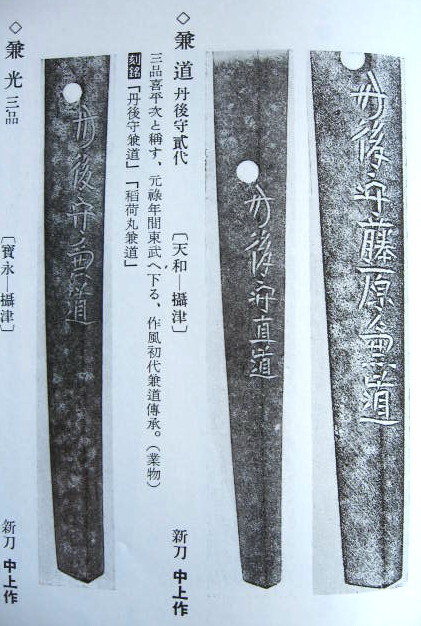 丹後守藤原兼道
丹後守直道
◇兼道 丹後守貳代 〔天和―攝津〕 新刀 中上作
三品喜平次と稱す、元祿年間東武へ下る、作風初代兼道傳承。（業物）
刻銘「丹後守兼道」「稻荷丸兼道」
丹後守兼道
◇兼光 三品 〔寶永―攝津〕 新刀 中上作